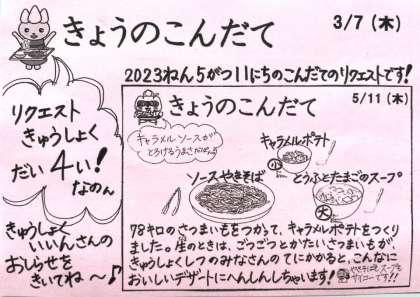 きょうのこんだて
3/7 (木)
2023ねん5がつ11にちのこんだてのリクエストです!
リクエスト
きゅうしょく
だい4い!
なのん
きゅうしょく
いいんさんの
おしらせを
きいてね〜♪
きょうのこんだて
5/11 (木)
キャラメルソースが
とろけるうまさだよん
キャラメルポテト
小
ソースやきそば
とうふとたまごのスープ
大
78キロのさつまいもをつかって、キャラメルポテトをつくり
ました。生のときは、ごつごつとかたいさつまいもが、
きゅうしょくしつのみなさんのてにかかると、こんなに
おいしいデザートにへんしんしちゃいます!
やきそばもスープも
サイコーです!!